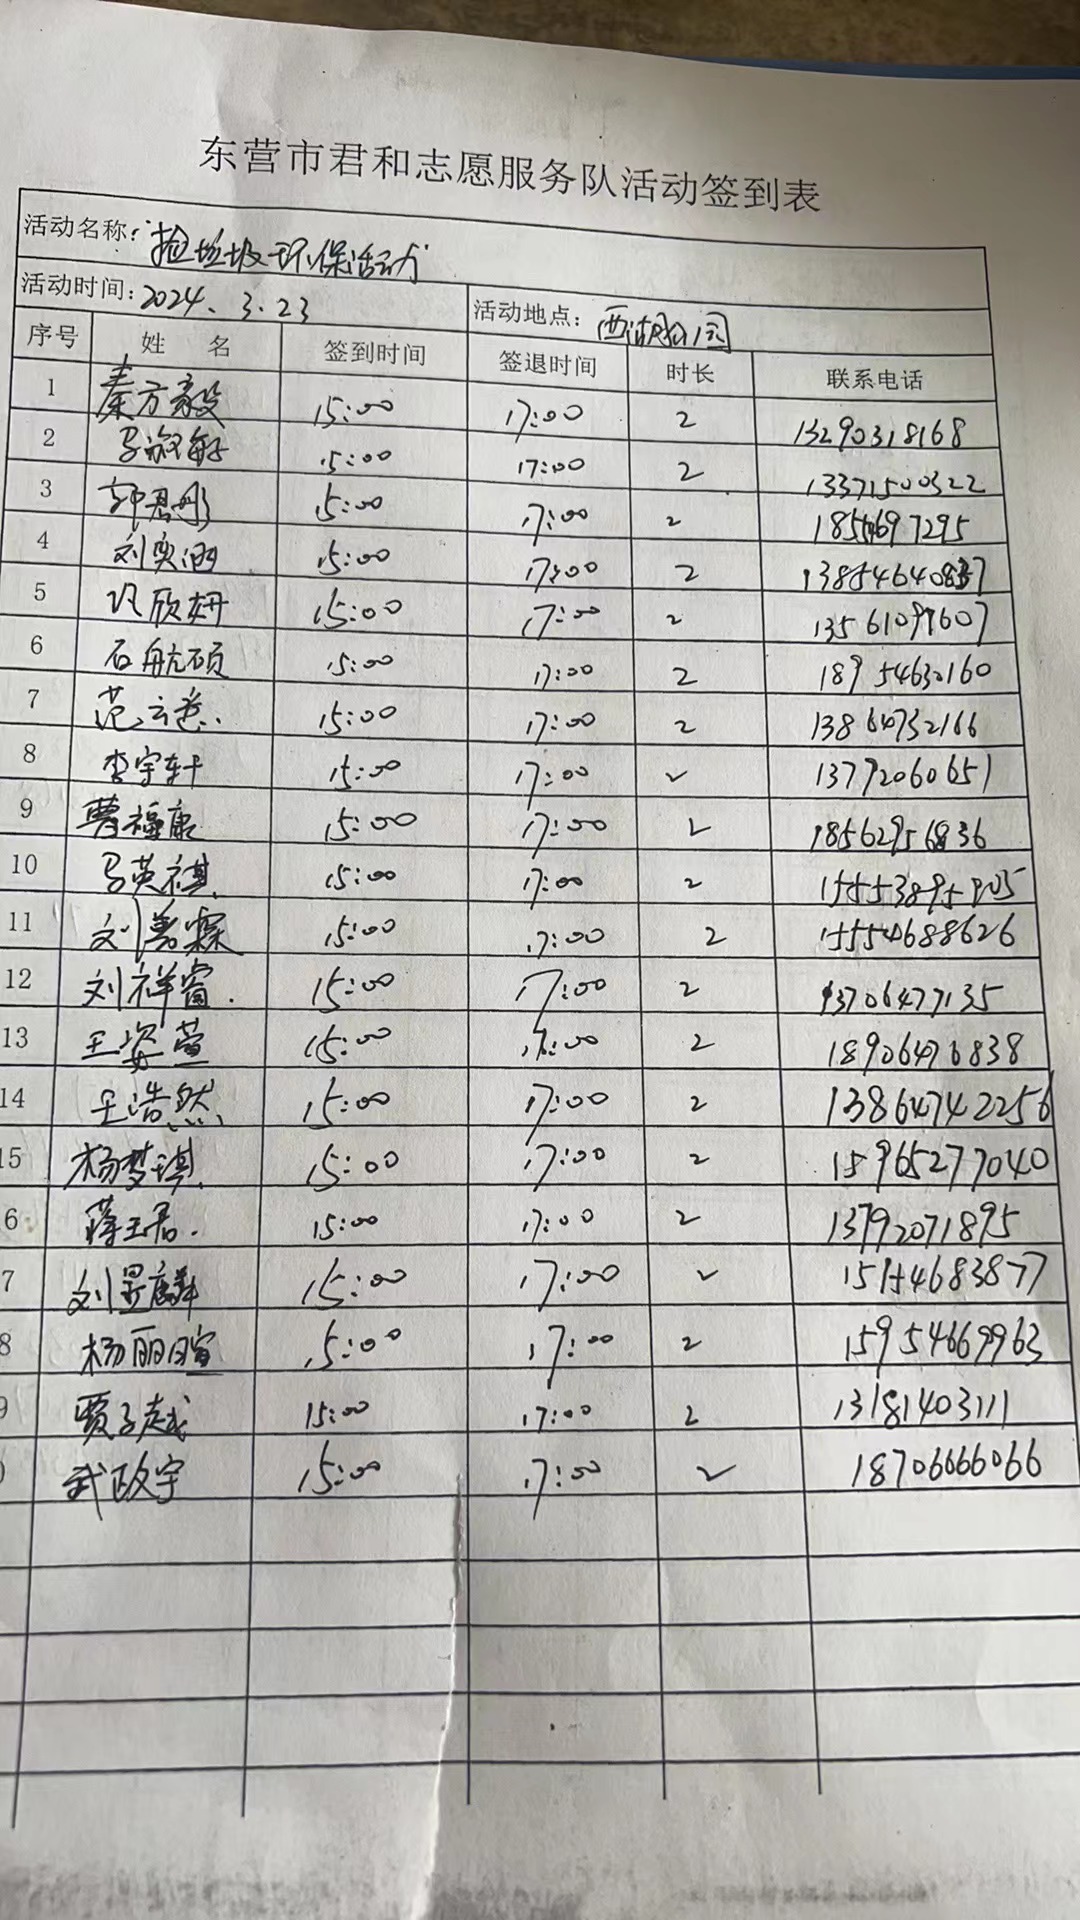 东营市君和志愿服务队活动签到表
活动名称: 捡垃圾环保活动
活动时间: 2024.3.23 活动地点: 西湖公园
序号 姓名 签到时间 签退时间 时长 联系电话
1 秦方毅 15:00 17:00 2 13290318168
2 15:00 17:00 2 13371500322
3 郭君彤 15:00 17:00 2
4 15:00 17:00 2
5 欣妍 15:00 17:00 2 13561099607
6 石航硕 15:00 17:00 2 18954630160
7 范云 15:00 17:00 2 13864732166
8 李宇轩 15:00 17:00 2 13792060651
9 曹福康 15:00 17:00 2
10 马英祺 15:00 17:00 2
11 刘若霖 15:00 17:00 2 15554688626
12 刘祥睿 15:00 17:00 2 13706477135
13 王姿萱 15:00 17:00 2 18906476838
14 王浩然 15:00 17:00 2 13864742256
15 杨梦琪 15:00 17:00 2 15965277040
6 蒋玉君 15:00 17:00 2 13792071895
7 刘昱麟 15:00 17:00 2 15154683877
8 杨丽暄 15:00 17:00 2 15954669963
9 贾子越 15:00 17:00 2 13181403111
0 武政宇 15:00 17:00 2 18706666066